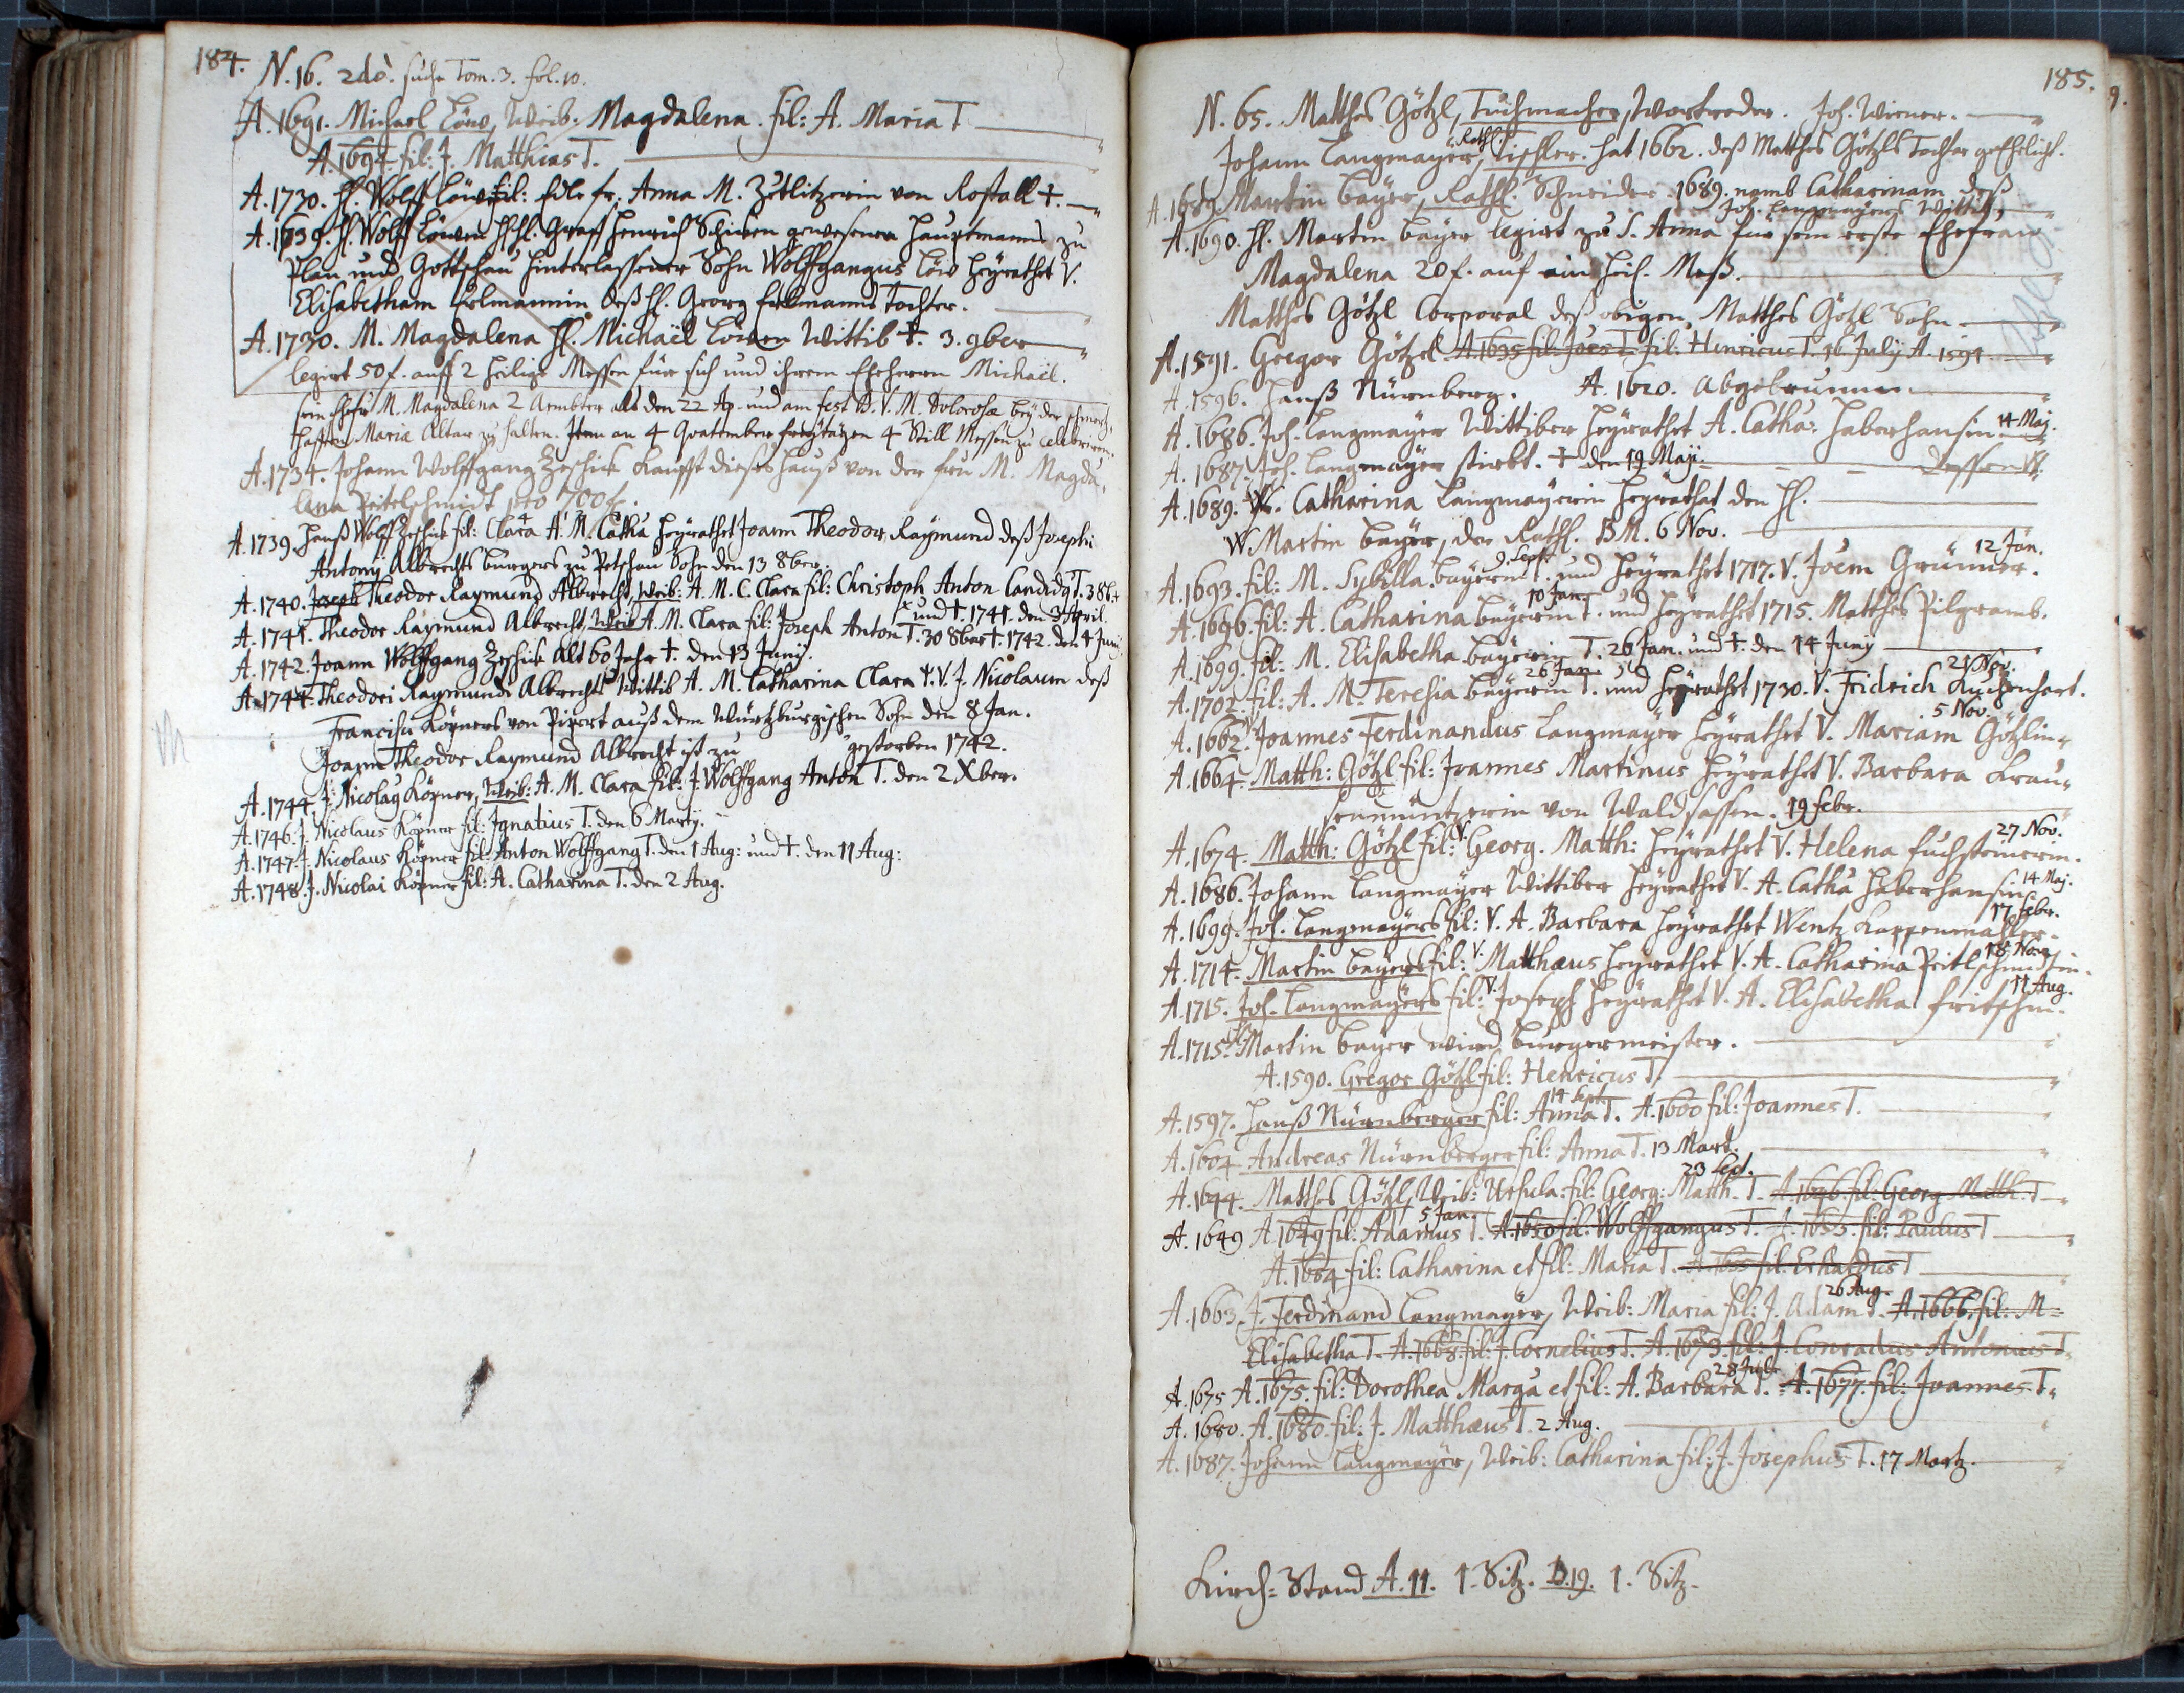 184.
N. 16. 2dò. suche Tom. 3. fol. 10.
A. 1691. Michael Löw, Weib: Magdalena. fil: A. Maria T
A. 1694 fil: J. Matthias T.
A. 1730. H. Wolff Löw fil: Anna M. Zetlitzerin von Rostall †.
A. 1639. H. Wolff Löwen Graff Henrich Schicken gewesenen Hauptmanns zu
Plan und Gottschau hinterlassener Sohn Wolffgangus Löw heyrathet V.
Elisabetham deß H. Georg Tochter.
A. 1730. M. Magdalena H. Michaël Löwen Wittib †. 3. 9ber
legirt 50 f. auff 2 heilige Messen für sich und ihrem Eheherrn Michaël.
sein M. Magdalena 2 als den 22 Ap. und am fest B. V. M. Dolorosæ bey der
Mariæ Altar zu halten. Item an 4 Quatember freytägen 4 Still Messen zu celebriren.
A. 1734. Johann Wolffgang Zeschick kaufft dieses Hauß von der M. Magda-
lena Peitelschmidt pro 700 f.
A. 1739. Hanß Wolff Zeschick fil: Clara A. M. Catha heyrathet Joann Theodor Raymund deß Josephi
Antony Albrechts burgers zu Petschau Sohn den 13 8ber.
A. 1740. Joseph Theodor Raymund Albrecht, Weib: A. M. C. Clara fil: Christoph Anton Candidy T. 3 8b.
und †. 1741. den 3 April.
A. 1741. Theodor Raymund Albrecht, Weib A. M. Clara fil: Joseph Anton T. 30 8ber †. 1742. den 4 Juny
A. 1742. Joann Wolffgang Zeschick alt 60 Jahr †. den 13 Juny.
A. 1744. Theodori Raymundi Albrechts Wittib A. M. Catharina Clara V. J. Nicolaum deß
Francisci Köpners von auß dem Würtzburgischen Sohn den 8 Jan.
Joann Theodor Raymund Albrecht ist zu gestorben 1742.
A. 1744. J. Nicolaÿ Köpner, Weib: A. M. Clara fil: J. Wolffgang Anton T. den 2 Xber.
A. 1746. J. Nicolaus Köpner fil: Ignatius T. den 6 Marty.
A. 1747. J. Nicolaus Köpner fil: Anton Wolffgang T. den 1 Aug: und †. den 11 Aug:
A. 1748. J. Nicolai Köpner fil: A. Catharina T. den 2 Aug.
185.
9.
N. 65. Matthes Götzl, Tuchmacher, Joh. Wiener.
Johann Langmayer, Rathl. Tischler. hat 1662. deß Matthes Götzls Tochter geehelicht.
A. 1689 Martin Bayer, Rathl. Schneider 1689. namb Catharinam deß
Joh. Langmayers Wittib,
A. 1690. H. Martin Bayer legirt zu S. Anna für sein erste Ehefrau
Magdalena 20 f. auf ein heil. Meß.
Matthes Götzl Corporal deß obigen, Matthes Götzl Sohn
A. 1591. Gregor Götzel. A. 1695 fil: Joes T. fil: Henricus T. 16 July A. 1591.
A. 1596. Hanß Nürnberg. A. 1620. abgebrunnen
A. 1686. Joh. Langmayer Wittiber heyrathet A. Catha: Haberhansin 14 Maj.
A. 1687. Joh. Langmayer stirbt. † den 19 Maji. dessen W.
A. 1689. W. Catharina Langmayerin heyrathet den H.
W Martin Bayer, des Rathl. B. M. 6 Nov.
A. 1693. fil: M. Sybilla Bayerin T. 9. Sept. und heyrathet 1717. V. Joem Grünner. 12 Jan.
A. 1696. fil: A. Catharina Bayerin T. 10 Jan. und heyrathet 1715. Matthes Pilgramb.
A. 1699. fil: M. Elisabetha Bayerin T. 26 Jan. und †. den 14 Juny
A. 1702. fil: A. M. Teresia Bayerin T. 26 Jan. und heyrathet 1730. V. Fridrich Kuchenhart. 21 Nov.
A. 1662. Joannes Ferdinandus Langmayer heyrathet V. Mariam Götzlin 5 Nov.
A. 1664. Matth: Götzl fil: Joannes Martinus heyrathet V. Barbara
von Waldsassen. 19 febr.
A. 1674. Matth: Götzl fil: V. Georg. Matth: heyrathet V. Helena fuchssteinerin. 27 Nov.
A. 1686. Johann Langmayer Wittiber heyrathet V. A. Catha Haberhansin 14 Maj.
A. 1699. Joh. Langmayers fil: V. A. Barbara heyrathet Wentz Kappenmahler. 17 febr.
A. 1714. Martin Bayers fil: V. Matthæus heyrathet V. A. Catharina Peitlschmidtin. 18 Nov.
A. 1715. Joh. Langmayers fil: V. Joseph heyrathet V. A. Elisabetha Fritschin. 11 Aug.
A. 1715. H. Martin Bayer wird Burgermeister.
A. 1590. Gregor Götzl fil: Henricus T.
A. 1597. Hanß Nürnberger fil: Anna T. 14 Sept. A. 1600 fil: Joannes T.
A. 1604 Andreas Nürnberger fil: Anna T. 13 Mart.
A. 1644. Matthes Götzl, Weib: Ursula. fil: Georg: Matth. T. 23 Sep. A. 1696. fil: Georg Matth. T
A. 1649 A. 1649 fil: Adamus T. 5 Jan. A. 1650 fil: Wolffgangus T. A. 1653. fil: Paulus T
A. 1654 fil: Catharina et fil: Maria T. A. 1655 fil: Erhardus T
A. 1663. J. Ferdinand Langmayer, Weib: Maria fil: J. Adam T. 26 Aug. A. 1666. fil: M=
Elisabetha T. A. 1668. fil: J. Cornelius T. A. 1673. fil: J. Conradus Antonius T.
A. 1675 A. 1675. fil: Dorothea Marga et fil: A. Barbara T. 28 July A. 1677. fil: Joannes T.
A. 1680. A. 1680. fil: J. Matthæus T. 2 Aug.
A. 1687. Johann Langmayer, Weib: Catharina fil: J. Josephus T. 17 Martz.
Kirch=Stand A. 11. 1. Sitz. B. 19. 1. Sitz.